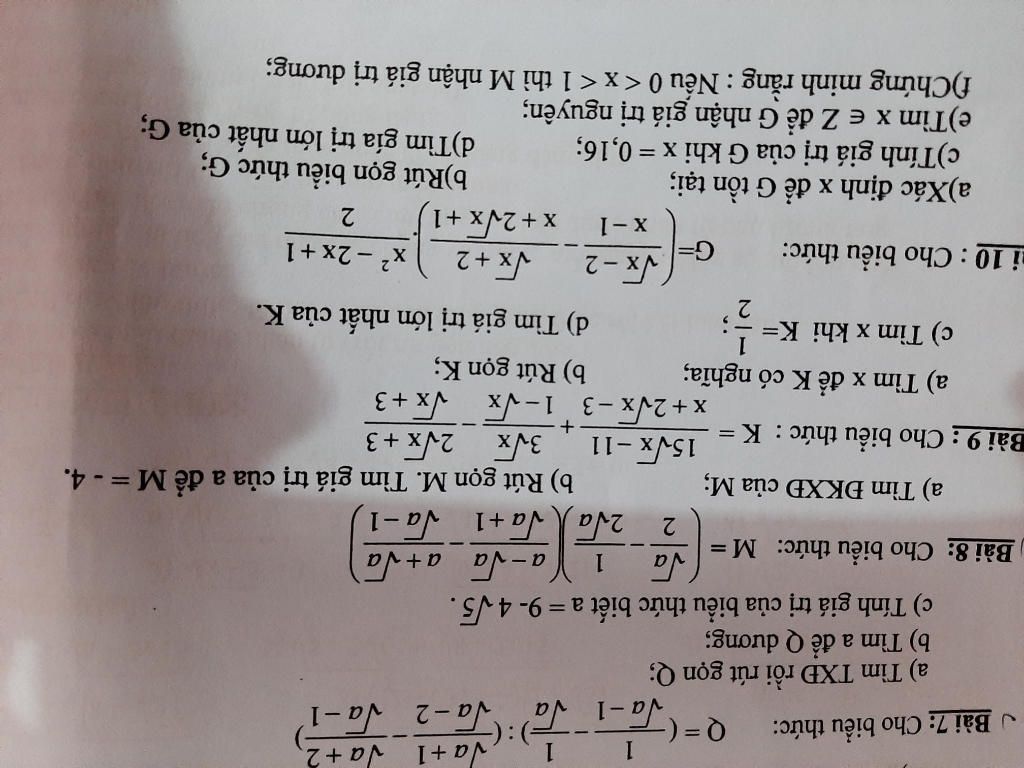 Bài 7: Cho biểu thức: Q = ( 1/(√a − 1) − 1/√a ) : ( (√a + 1)/(√a − 2) − (√a + 2)/(√a − 1) )
a) Tìm TXĐ rồi rút gọn Q;
b) Tìm a để Q dương;
c) Tính giá trị của biểu thức biết a = 9- 4√5 .
Bài 8: Cho biểu thức: M = ( √a/2 − 1/(2√a) )( (a − √a)/(√a + 1) − (a + √a)/(√a − 1) )
a) Tìm ĐKXĐ của M; b) Rút gọn M. Tìm giá trị của a để M = - 4.
Bài 9 : Cho biểu thức : K = (15√x − 11)/(x + 2√x − 3) + 3√x/(1 − √x) − (2√x + 3)/(√x + 3)
a) Tìm x để K có nghĩa; b) Rút gọn K;
c) Tìm x khi K= 1/2 ; d) Tìm giá trị lớn nhất của K.
ài 10 : Cho biểu thức: G= ( (√x − 2)/(x − 1) − (√x + 2)/(x + 2√x + 1) ) . (x² − 2x + 1)/2
a)Xác định x để G tồn tại; b)Rút gọn biểu thức G;
c)Tính giá trị của G khi x = 0,16; d)Tìm gía trị lớn nhất của G;
e)Tìm x ∈ Z để G nhận giá trị nguyên;
f)Chứng minh rằng : Nếu 0 < x < 1 thì M nhận giá trị dương;